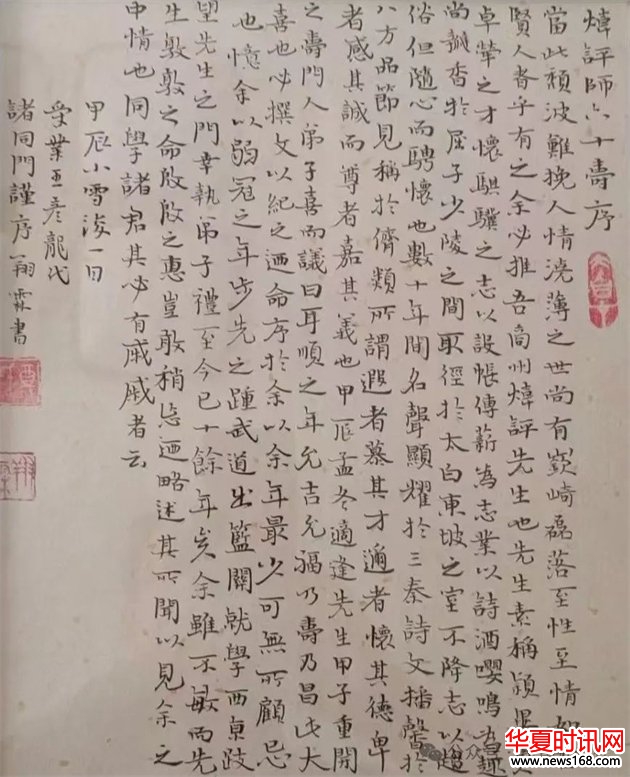 煒評師六十壽序
當此頹波難挽人情澆薄之世尚有嶔崎磊落至性至情如
賢人者乎有之余必推吾商州煒評先生也先生素稱穎
卓犖之才懷騏驥之志以設帳傳薪為志業以詩酒嚶鳴為
尚瓣香於屈子少陵之間取徑於太白東坡之室不降志以趨
俗但隨心而騁懷也數十年間名聲顯耀於三秦詩文播聲於
八方品節見稱於儕類所謂遐者慕其才邇者懷其德卑
者感其誠而尊者嘉其義也甲辰孟冬適逢先生甲子重開
之壽門人弟子喜而議曰耳順之年允吉允福乃壽乃昌此大
喜也必撰文以紀之迺命序於余以余年最少可無所顧忌
也憶余以弱冠之年步先之踵武道出藍關就學西京跂
望先生之門幸執弟子禮至今已十餘年矣余雖不敏而先
生敦敦之命殷殷之惠豈敢稍忘迺略述其所聞以見余之
中情也同學諸君其必有戚戚者云
甲辰小雪後一日
受業王彥龍代
諸同門謹序 翔霖書
华夏时讯网
www.news168.com